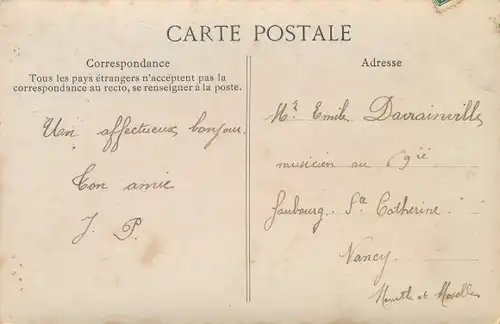 CARTE POSTALE
Correspondance
Tous les pays étrangers n'acceptent pas la
correspondance au recto, se renseigner à la poste.
Un affectueux bonjour.
Ton amie
J. P.
Adresse
Mr Emile Davrainville
musicien au 69ie
faubourg Ste Catherine
Nancy.
Meurthe et Moselle